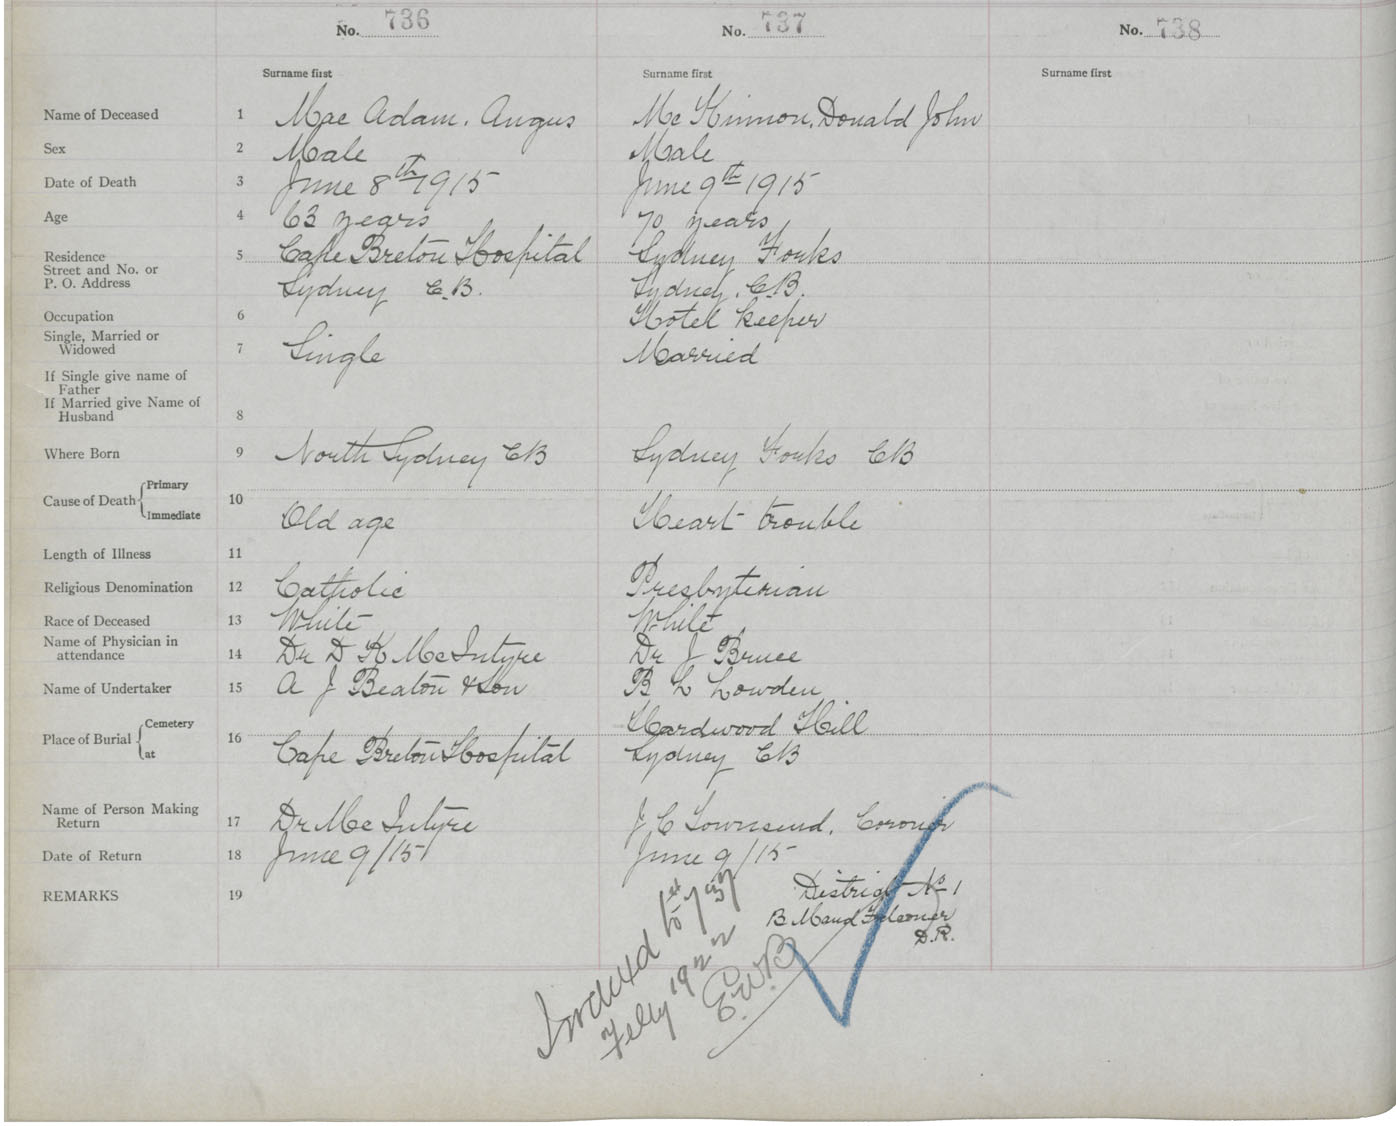 No. 736 No. 737 No. 738
Surname first Surname first Surname first
Name of Deceased 1 Mac Adam, Angus Mc Kinnon, Donald John
Sex 2 Male Male
Date of Death 3 June 8th 1915 June 9th 1915
Age 4 63 years 70 years
Residence 5 Cape Breton Hospital Sydney Forks
Street and No. or
P. O. Address Sydney C.B. Sydney, C.B.
Occupation 6 Hotel keeper
Single, Married or
Widowed 7 Single Married
If Single give name of
Father
If Married give Name of
Husband 8
Where Born 9 North Sydney CB Sydney Forks CB
Primary
Cause of Death 10
Immediate Old age Heart trouble
Length of Illness 11
Religious Denomination 12 Catholic Presbyterian
Race of Deceased 13 White White
Name of Physician in
attendance 14 Dr D K McIntyre Dr J Bruce
Name of Undertaker 15 A J Beaton & Son B L Lowden
Cemetery Hardwood Hill
Place of Burial 16
at Cape Breton Hospital Sydney CB
Name of Person Making
Return 17 Dr McIntyre J C Townsend, Coroner
Date of Return 18 June 9/15 June 9/15
REMARKS 19 District No 1
B Maud Falconer
D.R.
Indexed 1st to 737
1922
E.W.B